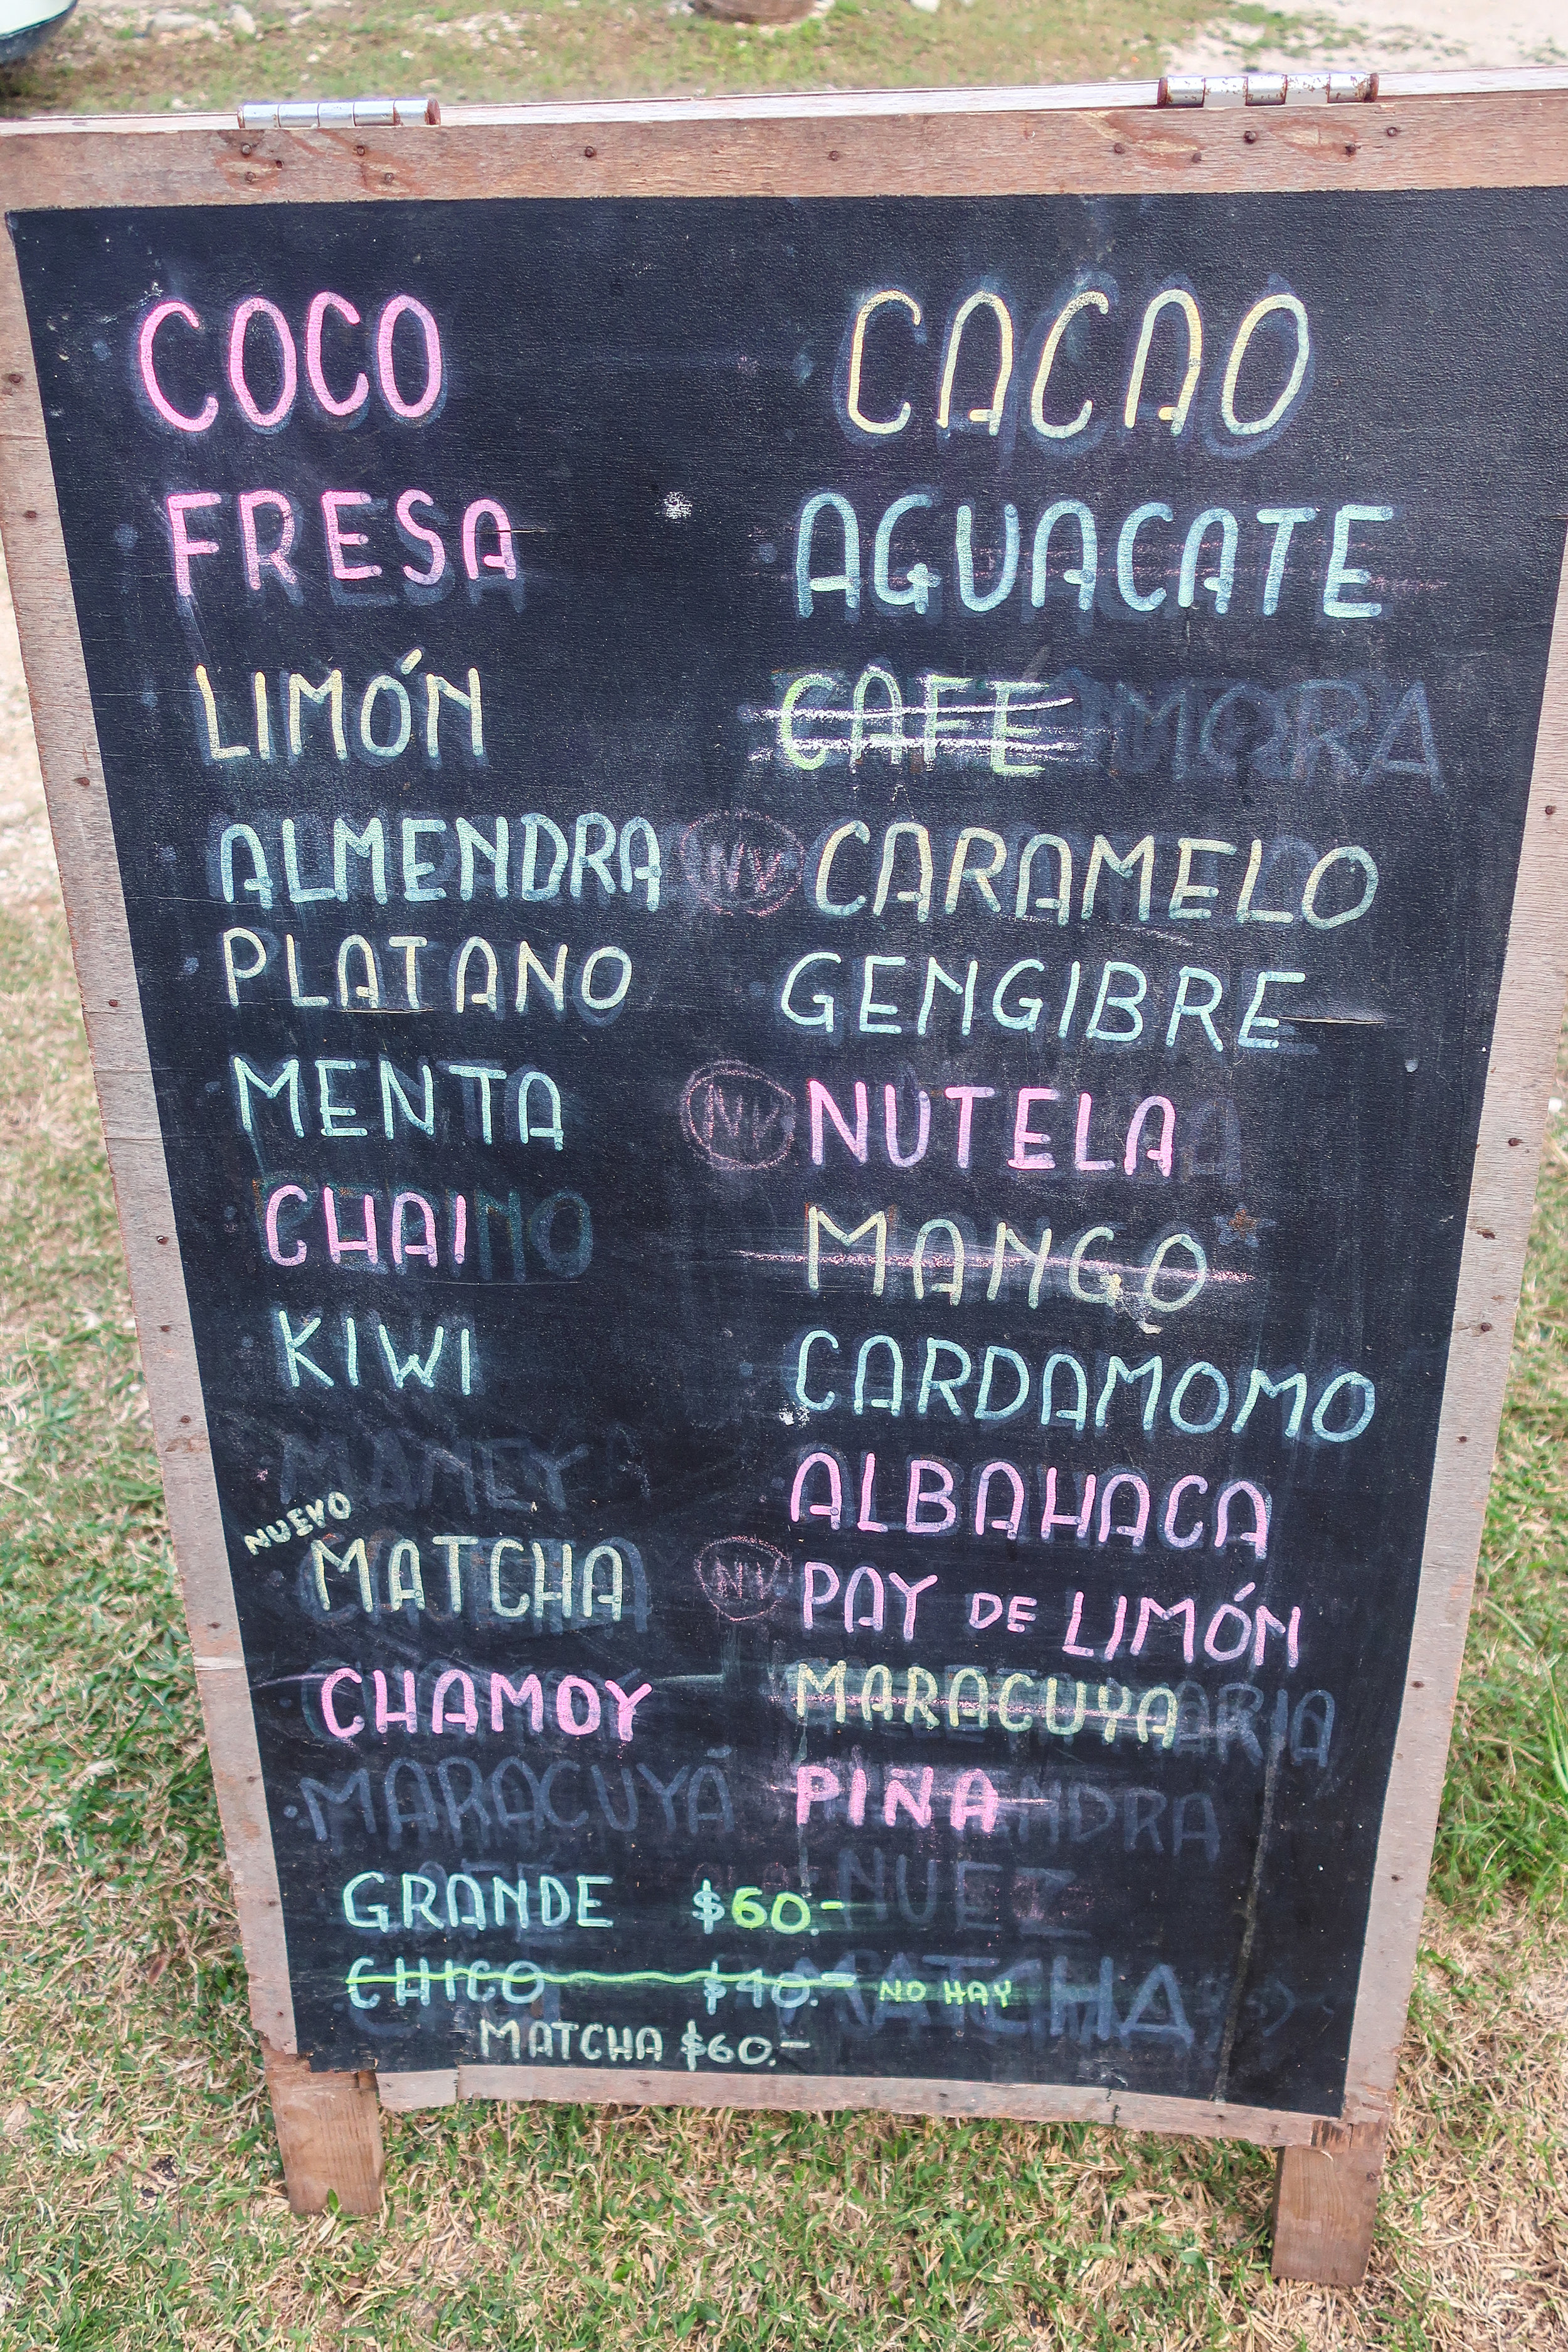 COCO
FRESA
LIMÓN
ALMENDRA
PLATANO
MENTA
CHAI
KIWI
MAMEY
NUEVO
MATCHA
CHAMOY
MARACUYÁ
CACAO
AGUACATE
CAFE MORA
NV CARAMELO
GENGIBRE
NV NUTELA
MANGO
CARDAMOMO
ALBAHACA
NV PAY DE LIMÓN
MARACUYA
PIÑA
NUEZ
MATCHA
GRANDE $60.-
CHICO $40.- NO HAY
MATCHA $60.-